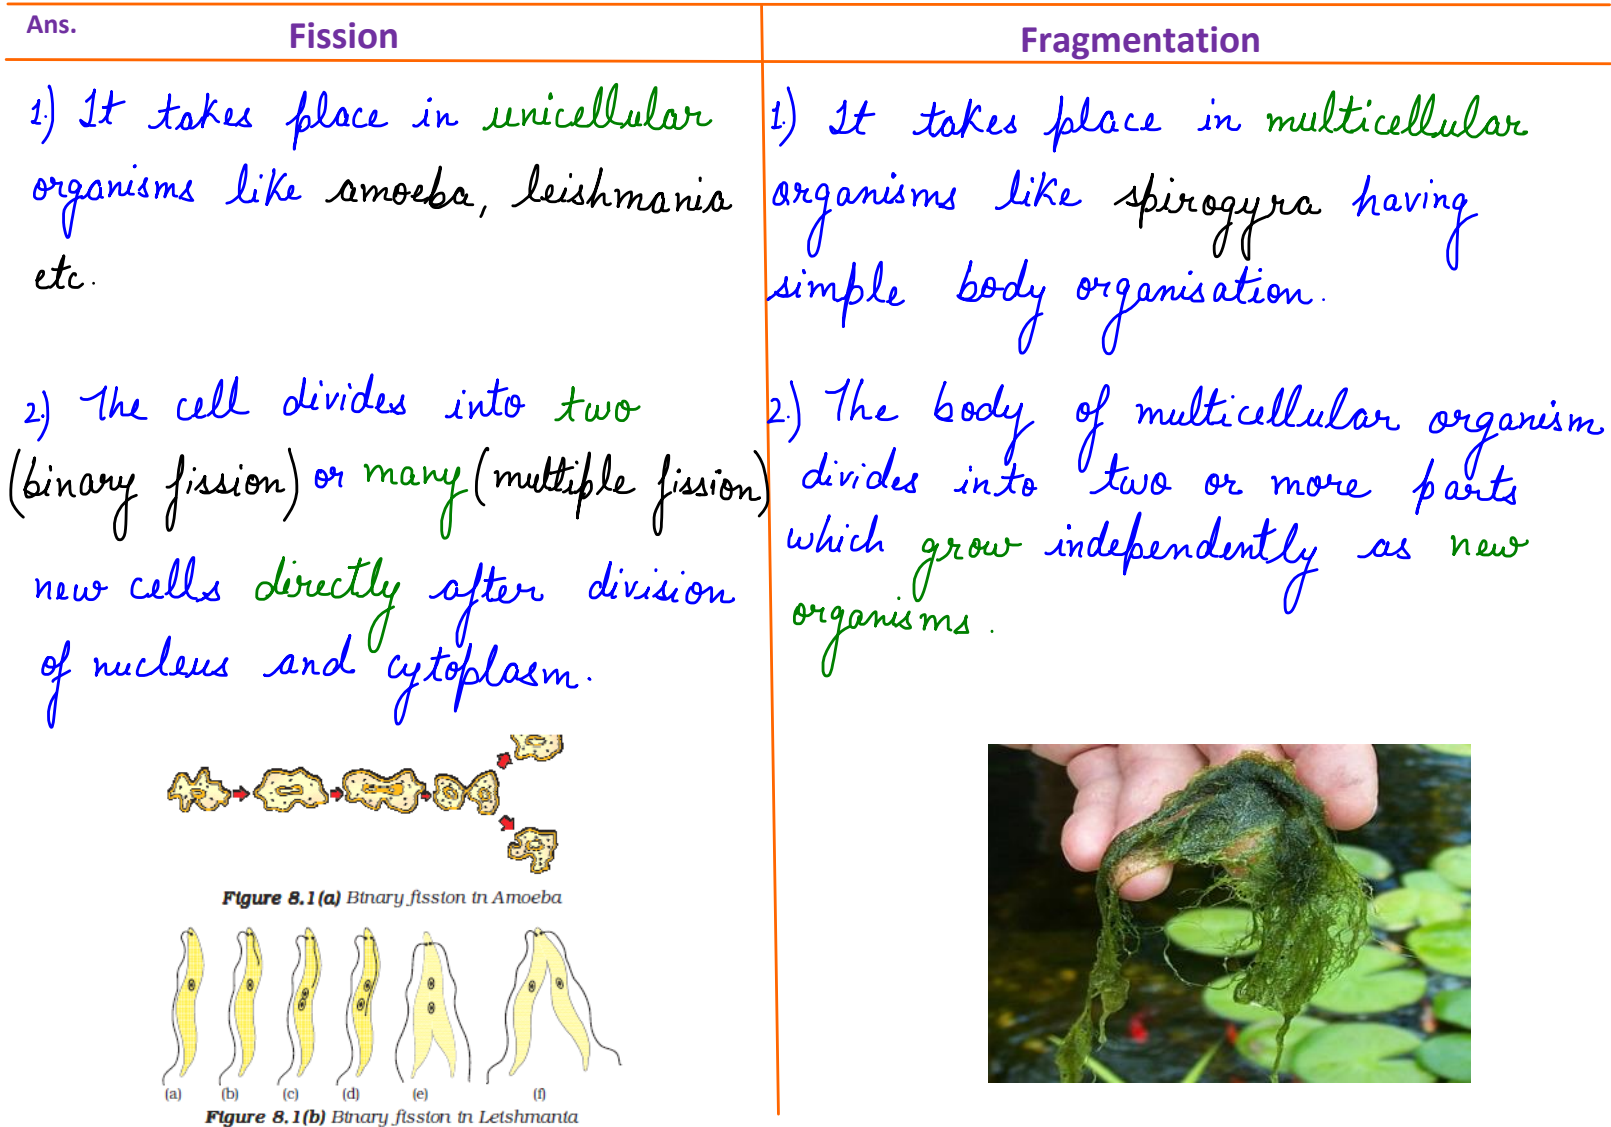 Ans.
Fission
1.) It takes place in unicellular
organisms like amoeba, leishmania
etc.
2.) The cell divides into two
(binary fission) or many (multiple fission)
new cells directly after division
of nucleus and cytoplasm.
Figure 8.1(a) Binary fission in Amoeba
(a) (b) (c) (d) (e) (f)
Figure 8.1(b) Binary fission in Leishmania
Fragmentation
1.) It takes place in multicellular
organisms like spirogyra having
simple body organisation.
2.) The body of multicellular organism
divides into two or more parts
which grow independently as new
organisms.